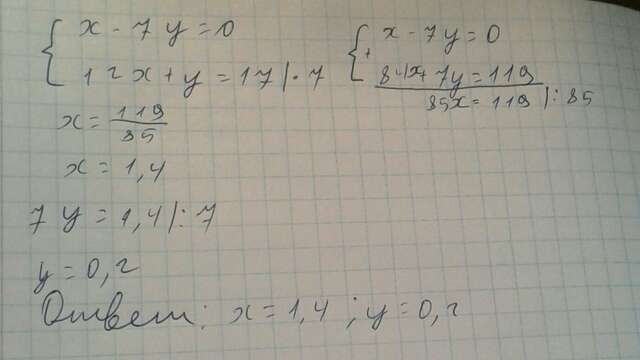 x - 7y = 0
12x + y = 17 | · 7
x - 7y = 0
+
84x + 7y = 119
85x = 119 | : 85
x = 119/85
x = 1,4
7y = 1,4 | : 7
y = 0,2
Ответ: x = 1,4 ; y = 0,2